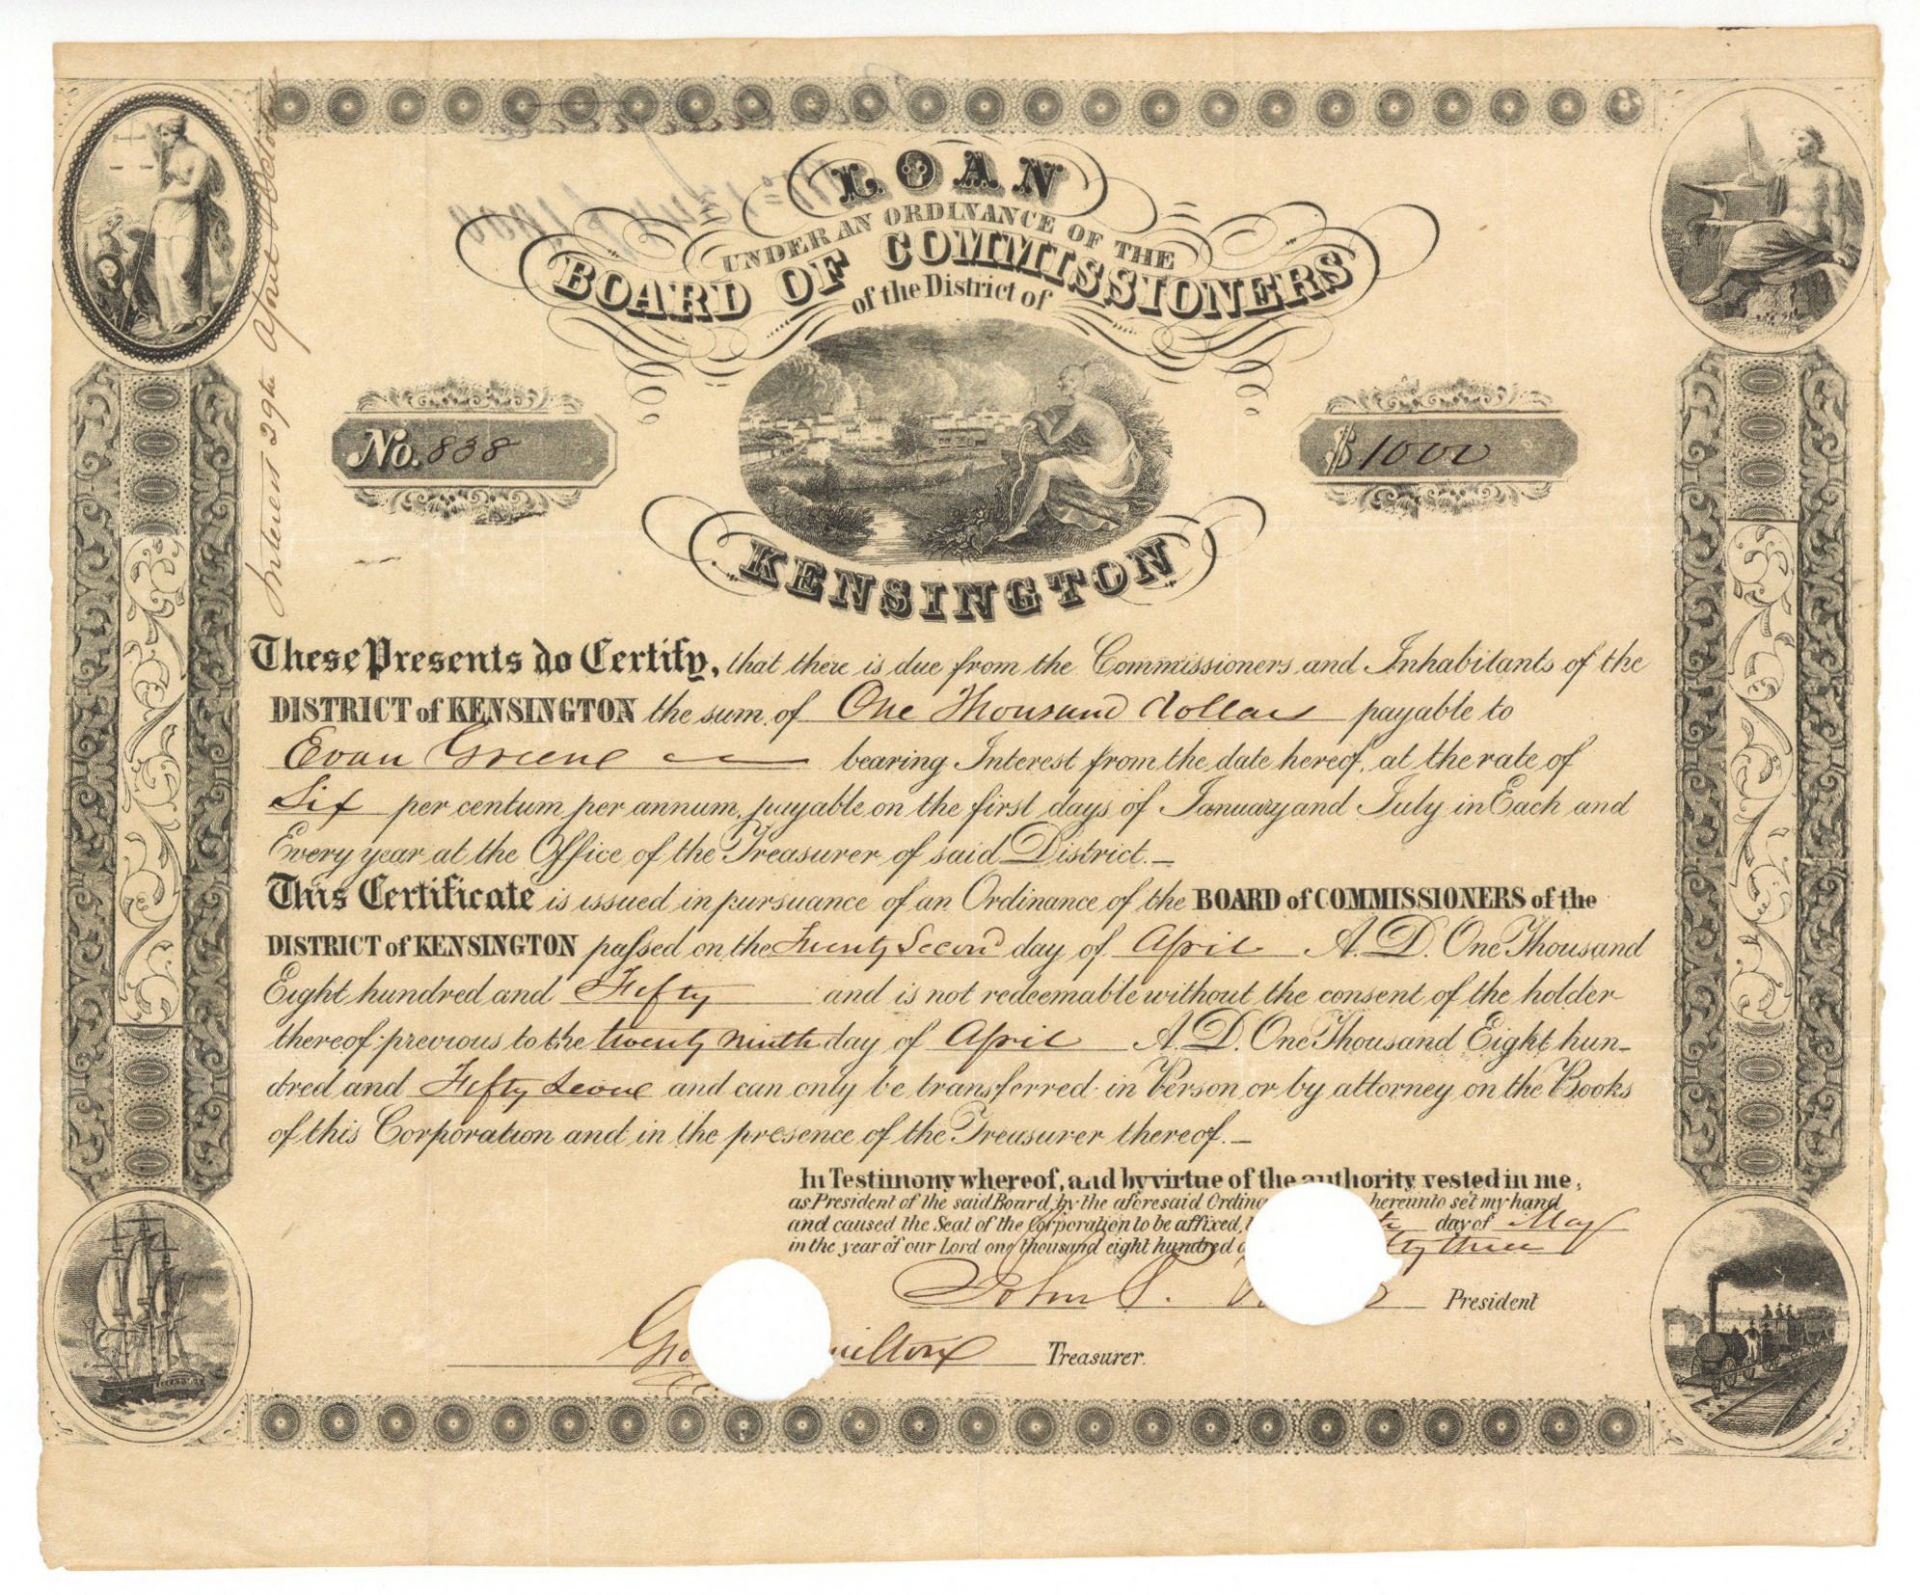 LOAN
UNDER AN ORDINANCE OF THE
BOARD OF COMMISSIONERS
of the District of
KENSINGTON
No. 838
$1000
Interest 29th April & October
These Presents do Certify, that there is due from the Commissioners and Inhabitants of the
DISTRICT of KENSINGTON the sum of One Thousand dollars payable to
Evan Greene bearing Interest from the date hereof, at the rate of
Six per centum per annum, payable on the first days of January and July in Each and
Every year at the Office of the Treasurer of said District.
This Certificate is issued in pursuance of an Ordinance of the BOARD of COMMISSIONERS of the
DISTRICT of KENSINGTON passed on the Twenty Second day of April A.D. One Thousand
Eight hundred and Fifty and is not redeemable without the consent of the holder
thereof previous to the twenty ninth day of April A.D. One Thousand Eight hun-
dred and Fifty Seven and can only be transferred in Person or by attorney on the Books
of this Corporation and in the presence of the Treasurer thereof.
In Testimony whereof, and by virtue of the authority vested in me,
as President of the said Board, by the aforesaid hereunto set my hand
and caused the Seal of the Corporation to be affixed, day of May
in the year of our Lord one thousand eight hundred three
John P. President
Geo Treasurer.